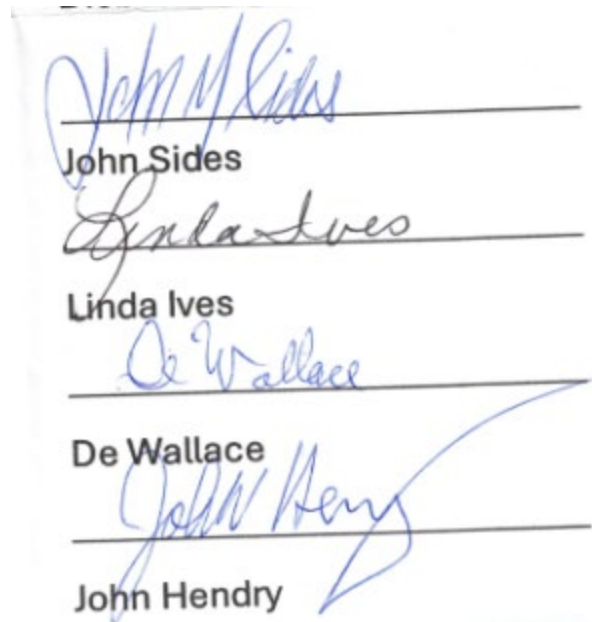 John M Sides
John Sides
Linda Ives
Linda Ives
De Wallace
De Wallace
John Hendry